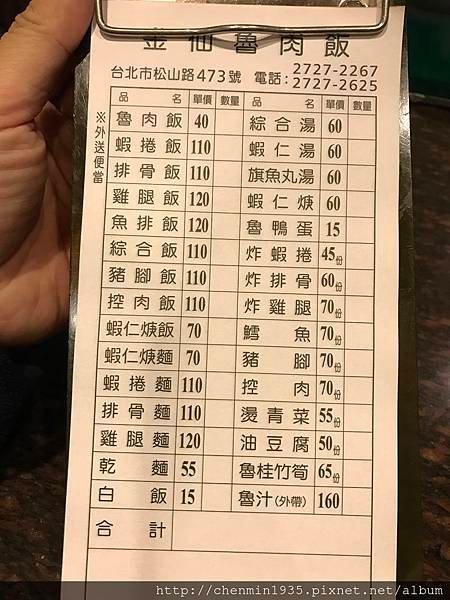 金仙魯肉飯
台北市松山路473號 電話:2727-2267
2727-2625
※外送便當
品名 單價 數量 品名 單價 數量
魯肉飯 40 綜合湯 60
蝦捲飯 110 蝦仁湯 60
排骨飯 110 旗魚丸湯 60
雞腿飯 120 蝦仁焿 60
魚排飯 120 魯鴨蛋 15
綜合飯 110 炸蝦捲 45份
豬腳飯 110 炸排骨 60份
控肉飯 110 炸雞腿 70份
蝦仁焿飯 70 鱈魚 70份
蝦仁焿麵 70 豬腳 70份
蝦捲麵 110 控肉 70份
排骨麵 110 燙青菜 55份
雞腿麵 120 油豆腐 50份
乾麵 55 魯桂竹筍 65份
白飯 15 魯汁(外帶) 160
合計
http://chenmin1935.pixnet.net/album